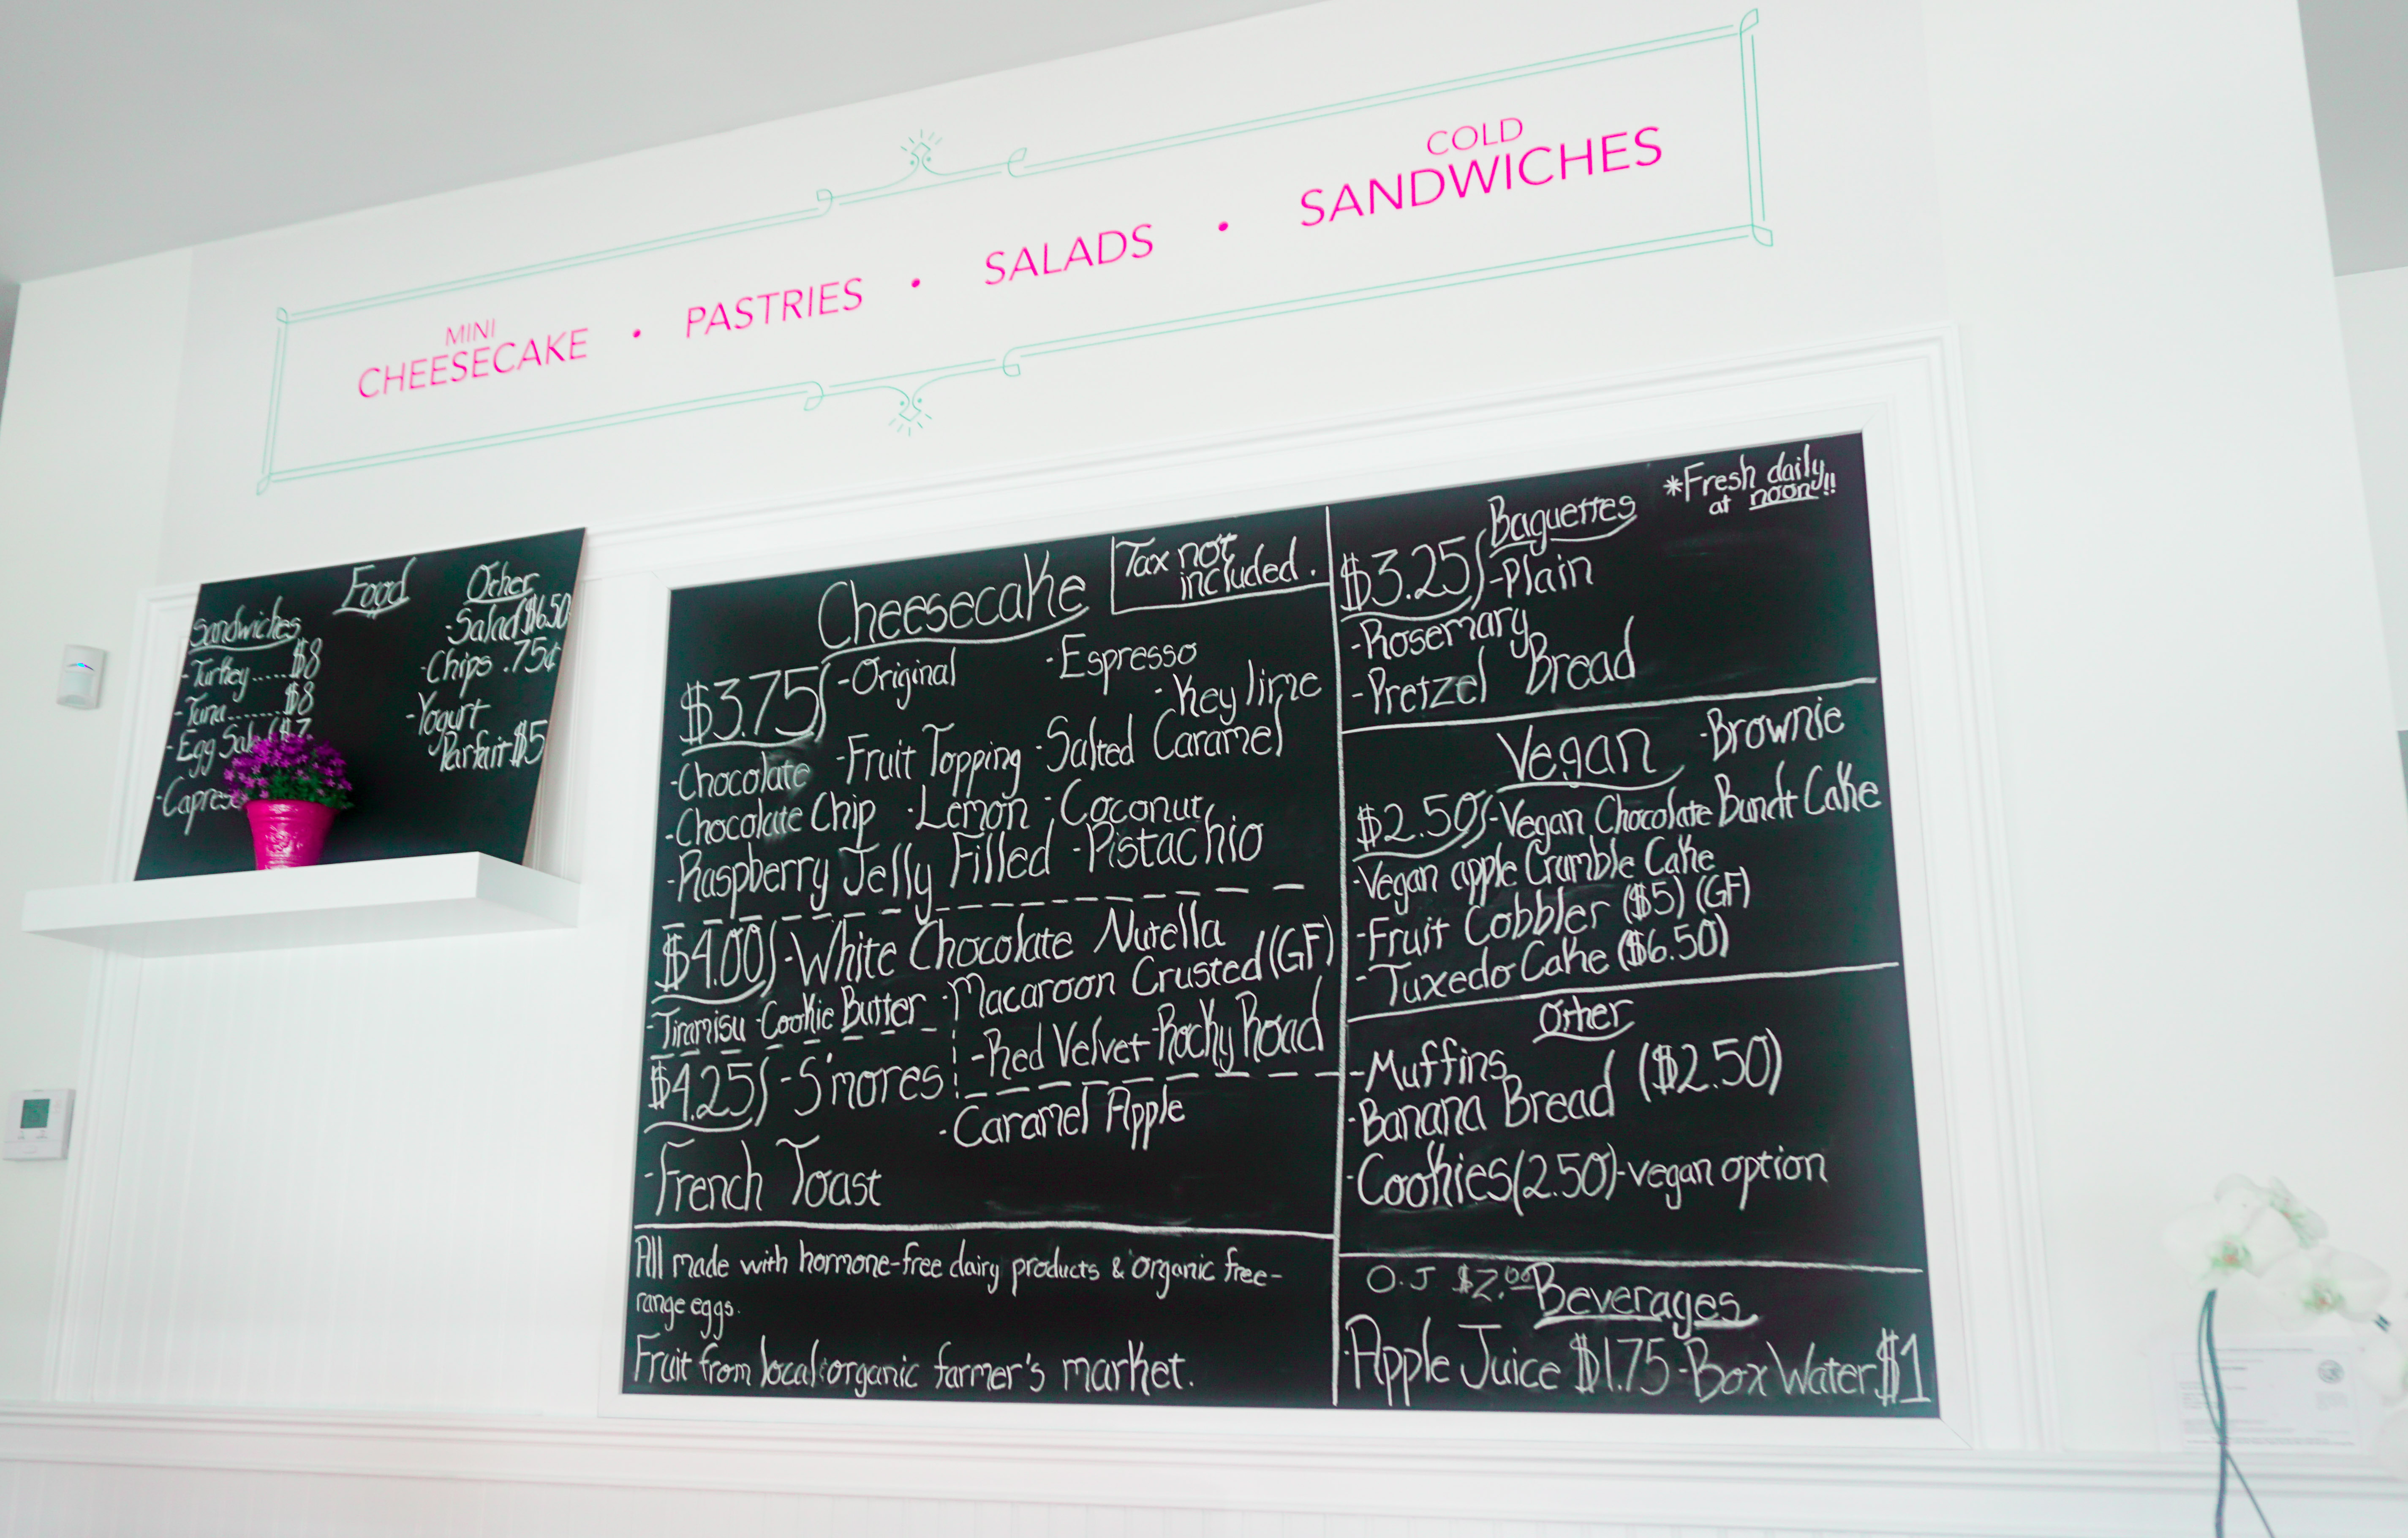 MINI
CHEESECAKE • PASTRIES • SALADS • COLD SANDWICHES
Food
Sandwiches
-Turkey......$8
-Tuna........$8
-Egg Sal $7.
-Capres
Other
-Salad $6.50
-Chips .75¢
-Yogurt
Parfait $5
Cheesecake
Tax not
included.
$3.75 -Original -Espresso
-Key lime
-Chocolate -Fruit Topping -Salted Caramel
-Chocolate Chip -Lemon -Coconut
-Raspberry Jelly Filled -Pistachio
$4.00 -White Chocolate Nutella
-Tiramisu -Cookie Butter -Macaroon Crusted (GF)
-Red Velvet -Rocky Road
$4.25 -S'mores
-Caramel Apple
-French Toast
All made with hormone-free dairy products & organic free-
range eggs.
Fruit from local organic farmer's market.
Baguettes
*Fresh daily
at noon!!
$3.25 -Plain
-Rosemary
-Pretzel Bread
Vegan -Brownie
$2.50 -Vegan Chocolate Bundt Cake
-Vegan apple Crumble Cake
-Fruit Cobbler ($5) (GF)
-Tuxedo Cake ($6.50)
Other
-Muffins
-Banana Bread ($2.50)
-Cookies (2.50)-vegan option
O.J $2.00 Beverages
-Apple Juice $1.75 -Box Water $1